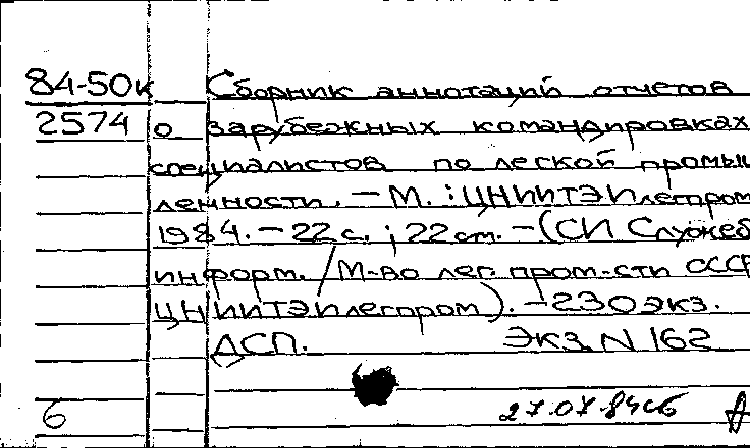 84-50к Сборник аннотаций отчетов
2574 о зарубежных командировках
специалистов по легкой промыш
ленности. – М. : ЦНИИТЭИлегпром
1984. – 22 с. ; 22 см. – (СИ Служеб
информ. / М-во лег. пром-сти СССР
ЦНИИТЭИлегпром). – 230 экз.
ДСП. Экз. N 162
6 27.07.84